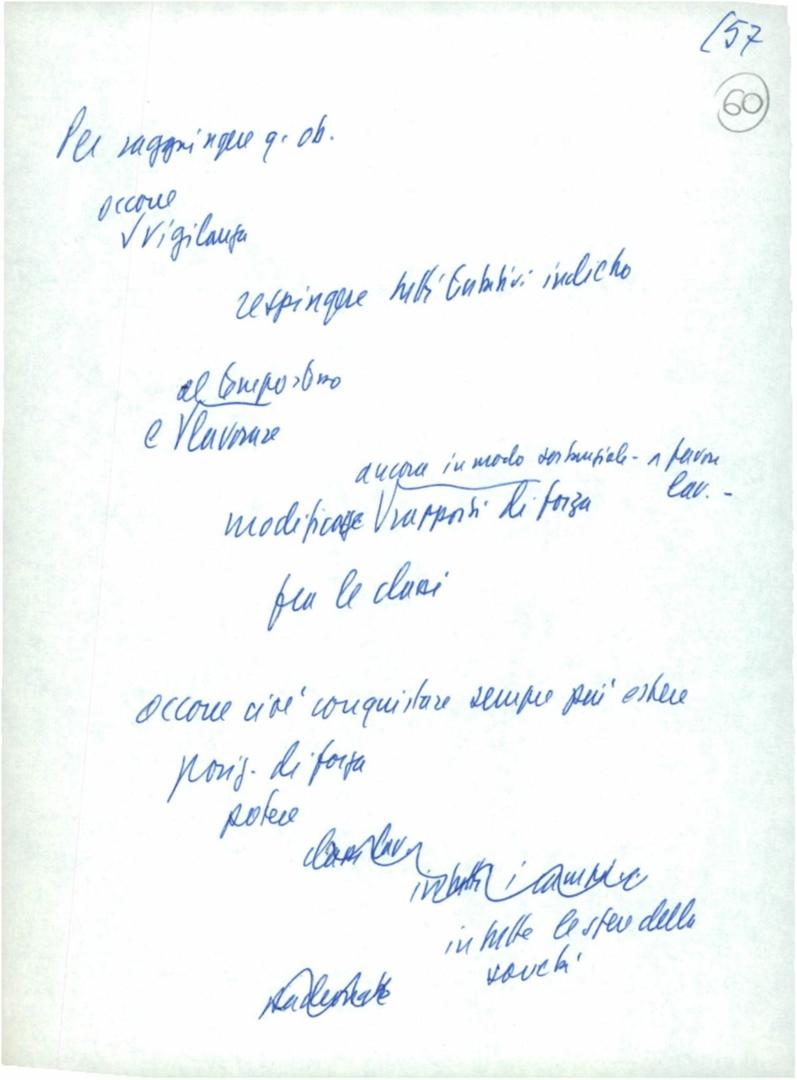 (57
60
Per raggiungere q. ob.
occorre
√ vigilanza
respingere tutti tentativi indietro
al tempo stesso
e √ lavorare
ancora in modo sostanziale - a favore
lav. -
modificare √ rapporti di forza
fra le classi
occorre cioè conquistare sempre più estese
posiz. di forza
potere
classi lav
in tutti i campi
in tutte le sfere della
società